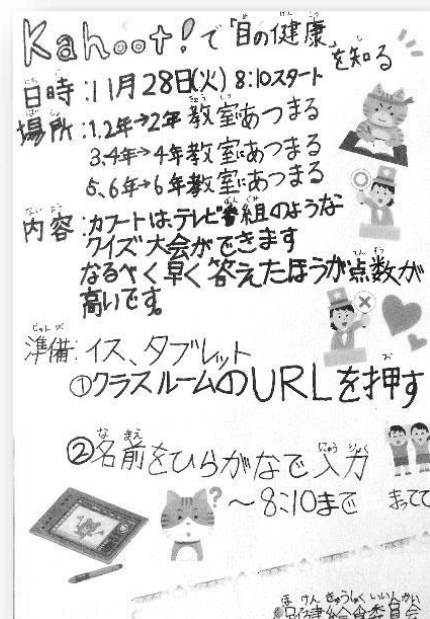 Kahoot!で「目の健康」を知る
日時:11月28日(火) 8:10スタート
場所:1.2年→2年教室にあつまる
3.4年→4年教室にあつまる
5、6年→6年教室にあつまる
内容:カフートは、テレビ番組のような
クイズ大会ができます
なるべく早く答えたほうが点数が
高いです。
準備:イス、タブレット
①クラスルームのURLを押す
②名前をひらがなで入力
?
~8:10まで まってて
保健給食委員会